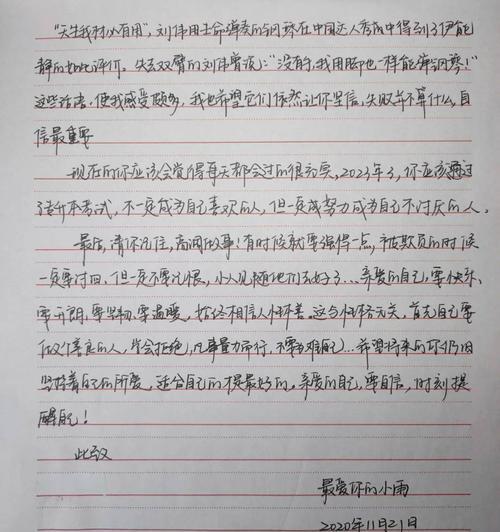 “天生我材必有用”，刘伟用生命弹奏的钢琴在中国达人秀成中得到了伊能
静的如此评价。失去双臂的刘伟曾说：“没有手，我用脚也一样能弹钢琴！”
这些话语，使我感受颇多，我也希望它们依然让你坚信，失败并不算什么，自
信最重要
现在的你应该会觉得每天都会过的很充实，2023年了，你应该通过
专升本考试，不一定成为自己喜欢的人，但一定成努力成为自己不讨厌的人。
最后，请你记住，高调做事！有时候就要强得一点，被欺负的时候
一定要讨回，但一定不要记恨，小人见随他们去好了…亲爱的自己，要快乐、
要开朗，要坚韧，要温暖，始终相信人性本善。这与性格无关，首先自己要
做个善良的人，学会拒绝，凡事量力而行，不要为难自己…希望将来的你仍旧
坚持着自己的所爱，适合自己的才是最好的。亲爱的自己，要自信，时刻提
醒自己！
此致
最爱你的小雨
2020年11月21日